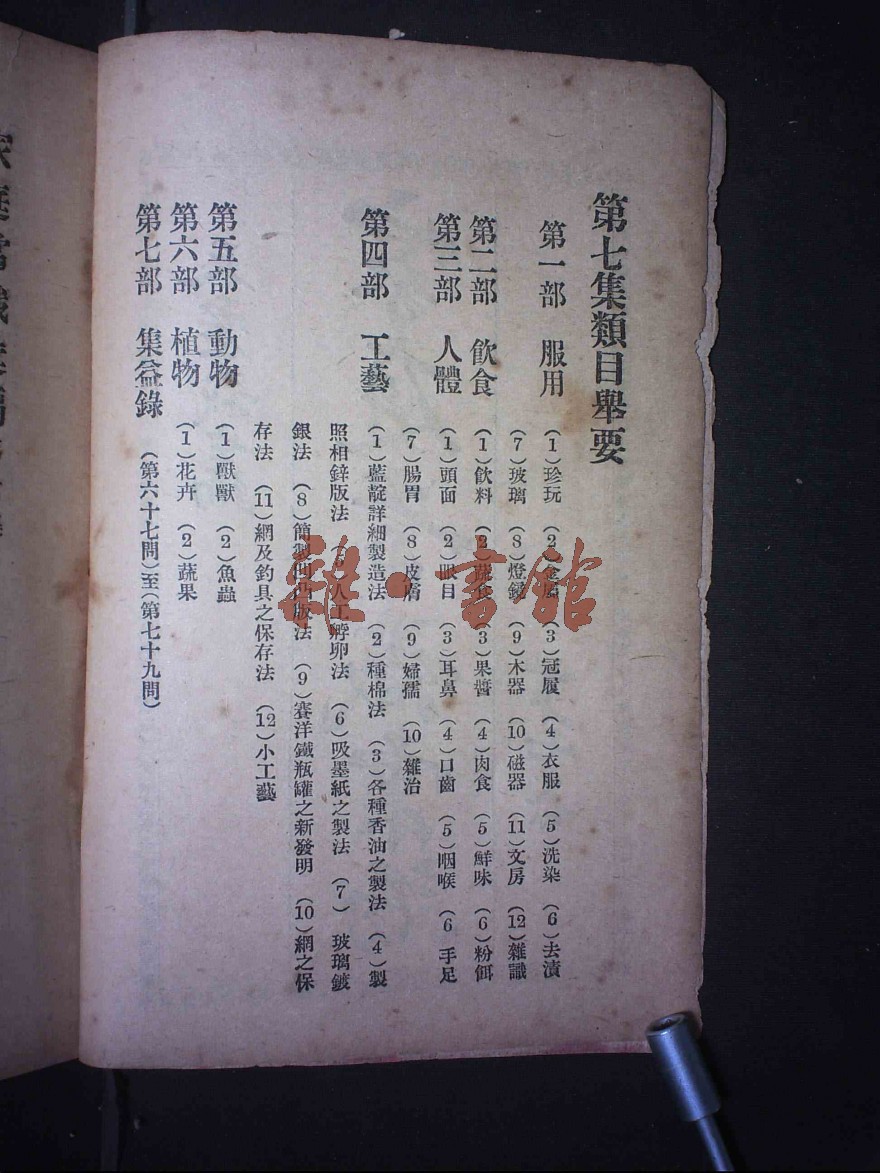 第七集類目舉要
第一部　服用
（1）珍玩　（2）金屬　（3）冠履　（4）衣服　（5）洗染　（6）去漬
（7）玻璃　（8）燈鏡　（9）木器　（10）磁器　（11）文房　（12）雜識
第二部　飲食
（1）飲料　（2）蔬食　（3）果醬　（4）肉食　（5）鮮味　（6）粉餌
第三部　人體
（1）頭面　（2）眼目　（3）耳鼻　（4）口齒　（5）咽喉　（6 手足
（7）腸胃　（8）皮膚　（9）婦孺　（10）雜治
第四部　工藝
（1）藍靛詳細製造法　（2）種棉法　（3）各種香油之製法　（4）製
照相鋅版法　（5）人工孵卵法　（6）吸墨紙之製法　（7）　玻璃鍍
銀法　（8）簡製凹凸版法　（9）賽洋鐵瓶罐之新發明　（10）網之保
存法　（11）網及釣具之保存法　（12）小工藝
第五部　動物
（1）獸　（2）魚蟲
第六部　植物
（1）花卉　（2）蔬果
第七部　集益錄
（第六十七問）至（第七十九問）
雜·書館